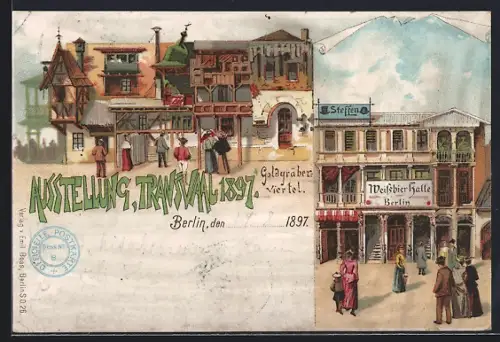 Steffen
Weißbier Halle
Berlin
AUSSTELLUNG, TRANSVAAL 1897.
Goldgräber-
viertel.
Berlin, den 1897.
OFFICIELLE POSTKARTE
Verlag v. Emil
Berlin S.O. 26.